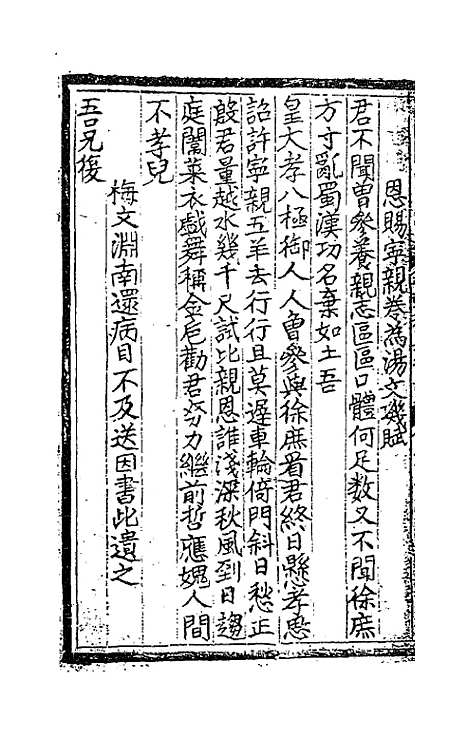 恩賜寧親卷為湯文璣賦
君不聞曾參養親志區區口體何足数又不聞徐庶
方寸亂蜀漢功名棄如土吾
皇大孝八極御人人曾參與徐庶看君終日懸孝思
詔許寧親五羊去行行且莫遲車輪倚門斜日愁正
殷君量越水幾千尺試比親恩誰淺深秋風到日趨
庭闈萊衣戲舞稱金卮勸君努力繼前哲應媿人間
不孝兒
梅文淵南還病目不及送因書此遺之
吾兄後